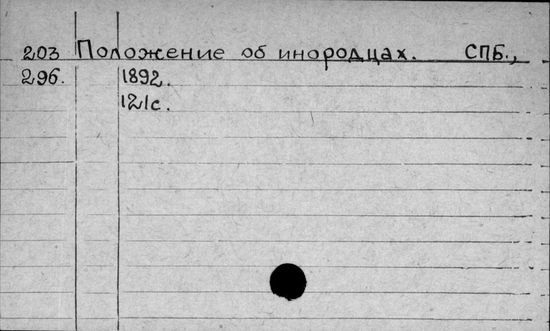 203 Положение об инородцах. СПБ.,
296. 1892.
121с.